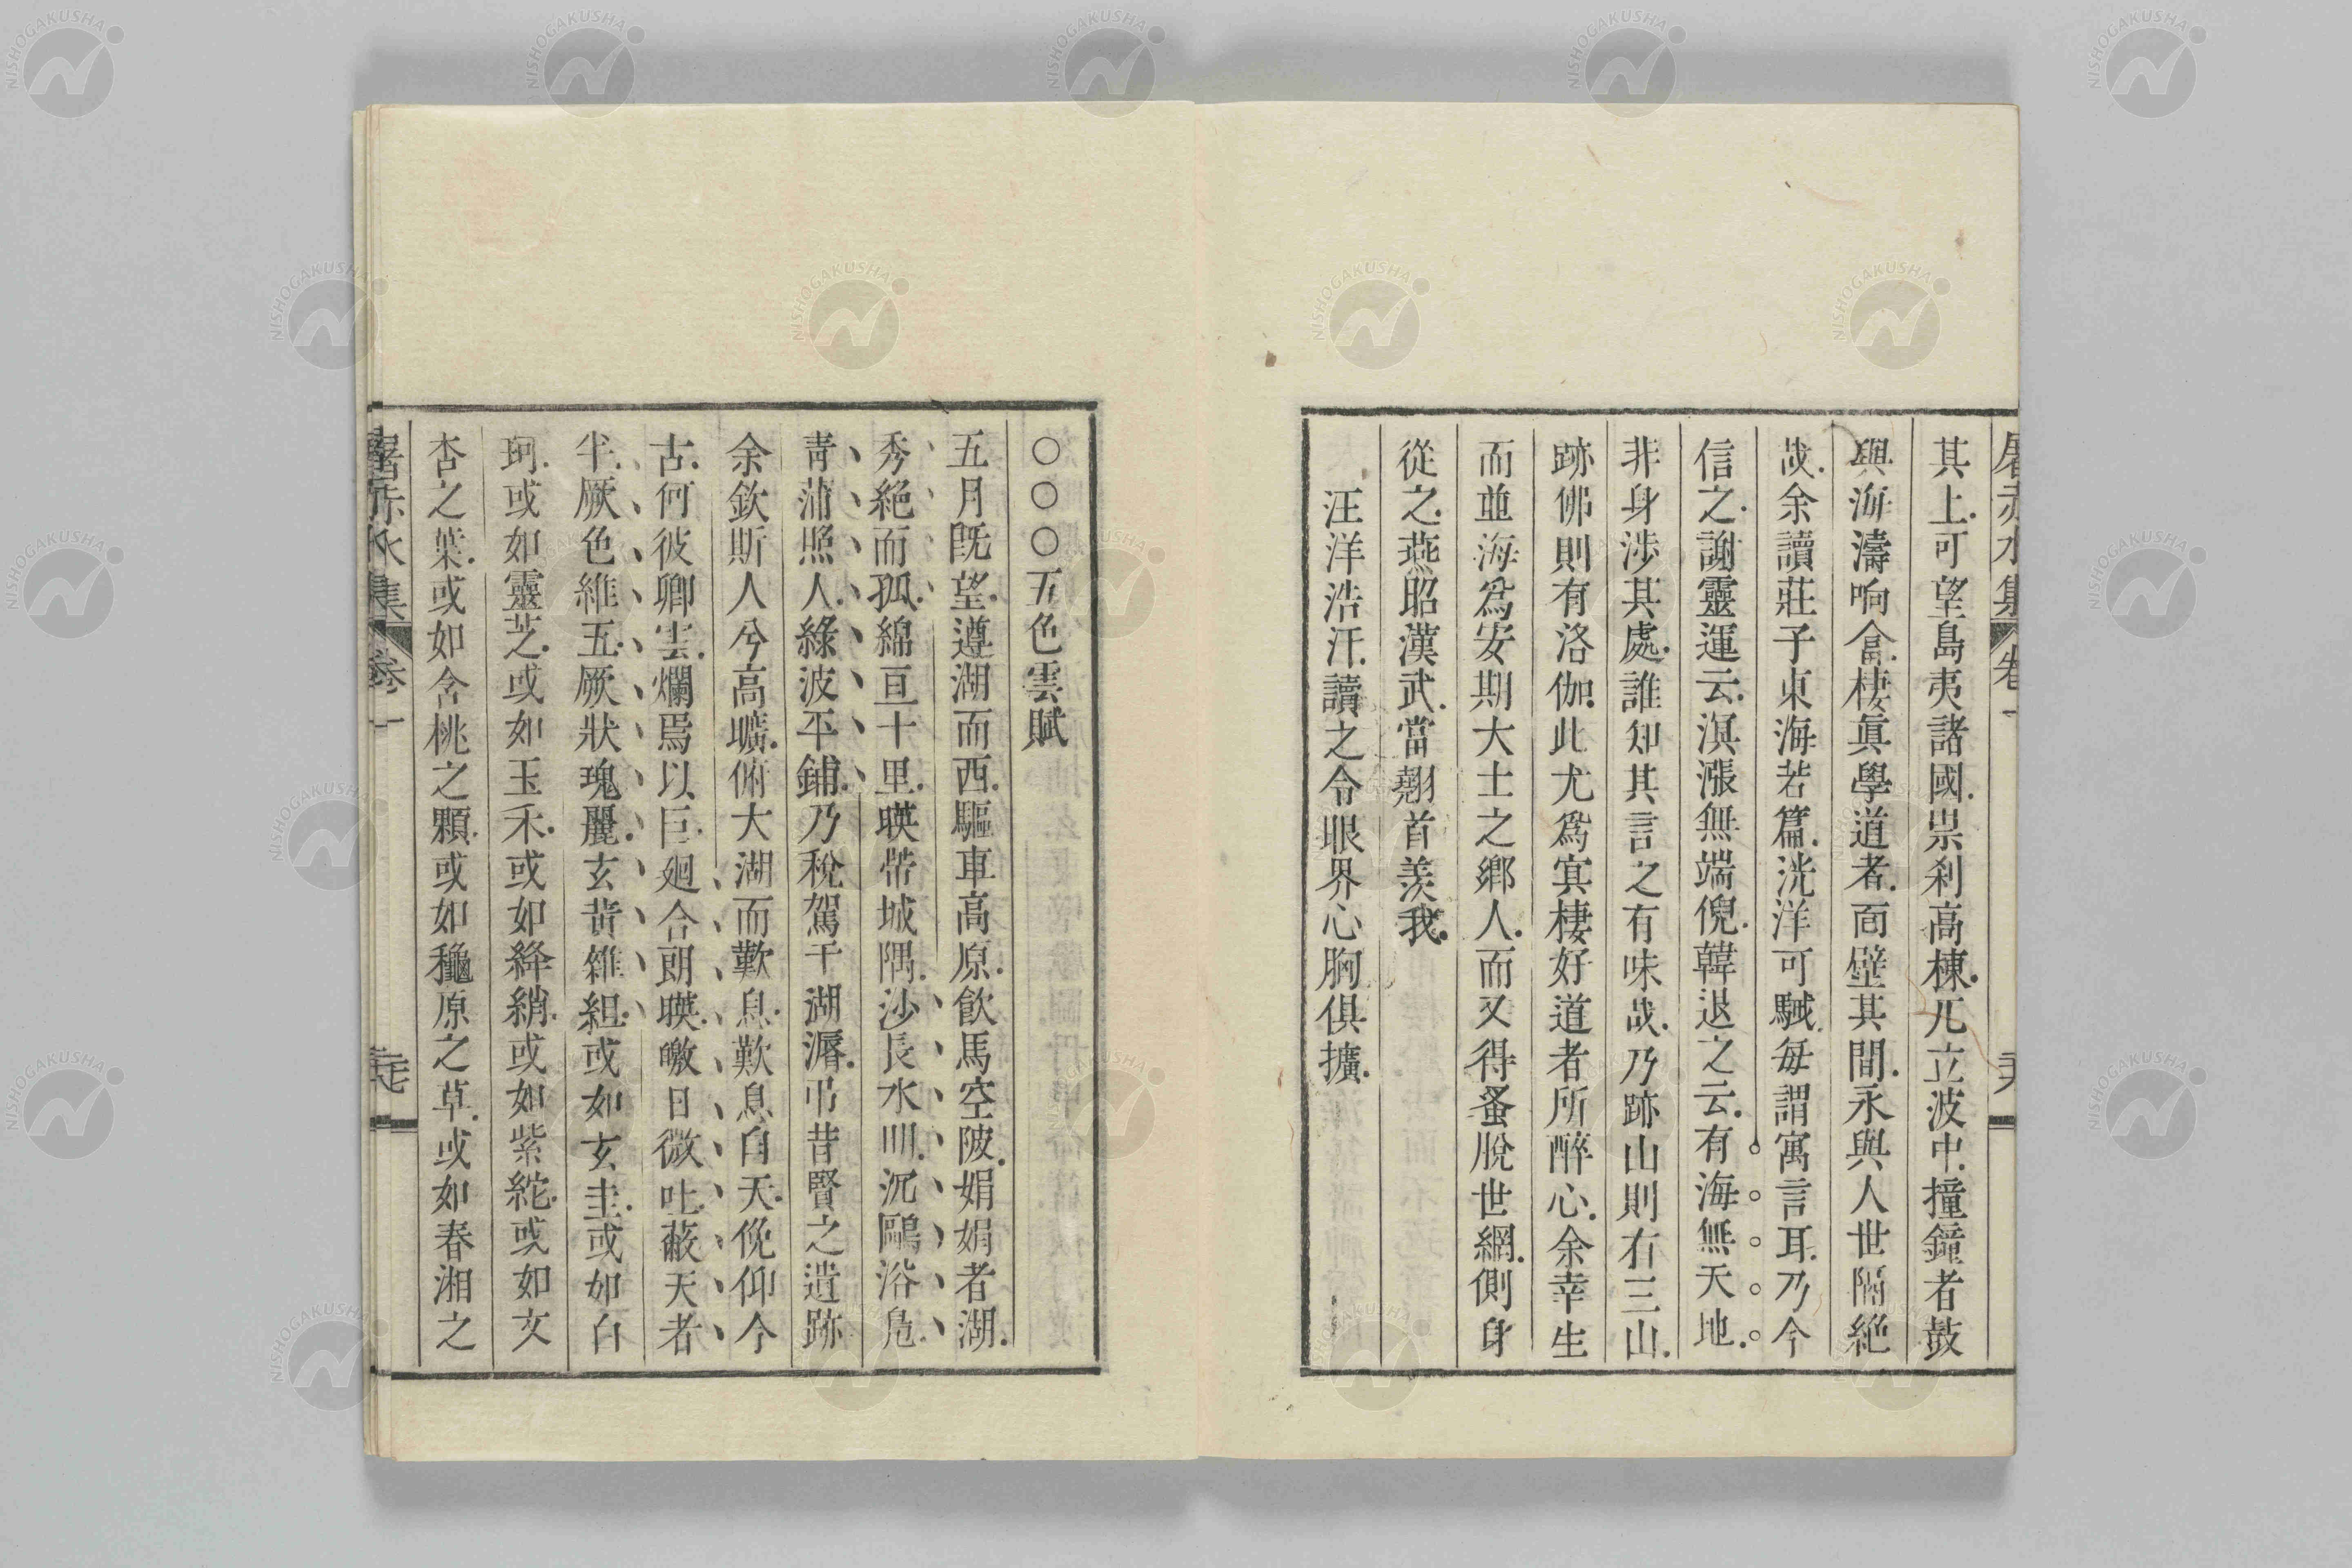 其上可望島夷諸國崇刹高棟兀立波中撞鐘者鼓
與海濤响畣棲眞學道者面壁其間永與人世隔絶
哉余讀莊子東海若篇洸洋可駴每謂寓言耳乃今
信之謝靈運云溟漲無端倪韓退之云有海無天地
非身涉其處誰知其言之有味哉乃跡山則有三山
跡佛則有洛伽此尤爲冥棲好道者所醉心余幸生
而並海爲安期大士之鄉人而又得蚤脫世網側身
從之燕昭漢武當翹首羨我
汪洋浩汗讀之令眼界心胸俱擴
○○○五色雲賦
五月旣望遵湖而西驅車高原飮馬空陂娟娟者湖
秀絶而孤綿亘十里暎帶城隅沙長水明沉鷗浴鳧
靑蒲照人綠波平鋪乃稅駕于湖漘弔昔賢之遺跡
余欽斯人兮高曠俯大湖而歎息歎息自天俛仰今
古何彼卿雲爛焉以巨廻合朗暎曒日微吐蔽天者
半厥色維五厥狀瑰麗玄黃雜組或如玄圭或如白
珂或如靈芝或如玉禾或如絳綃或如紫紽或如文
杏之葉或如含桃之顆或如龝原之草或如春湘之
屠赤水集 卷一
屠赤水集 卷一